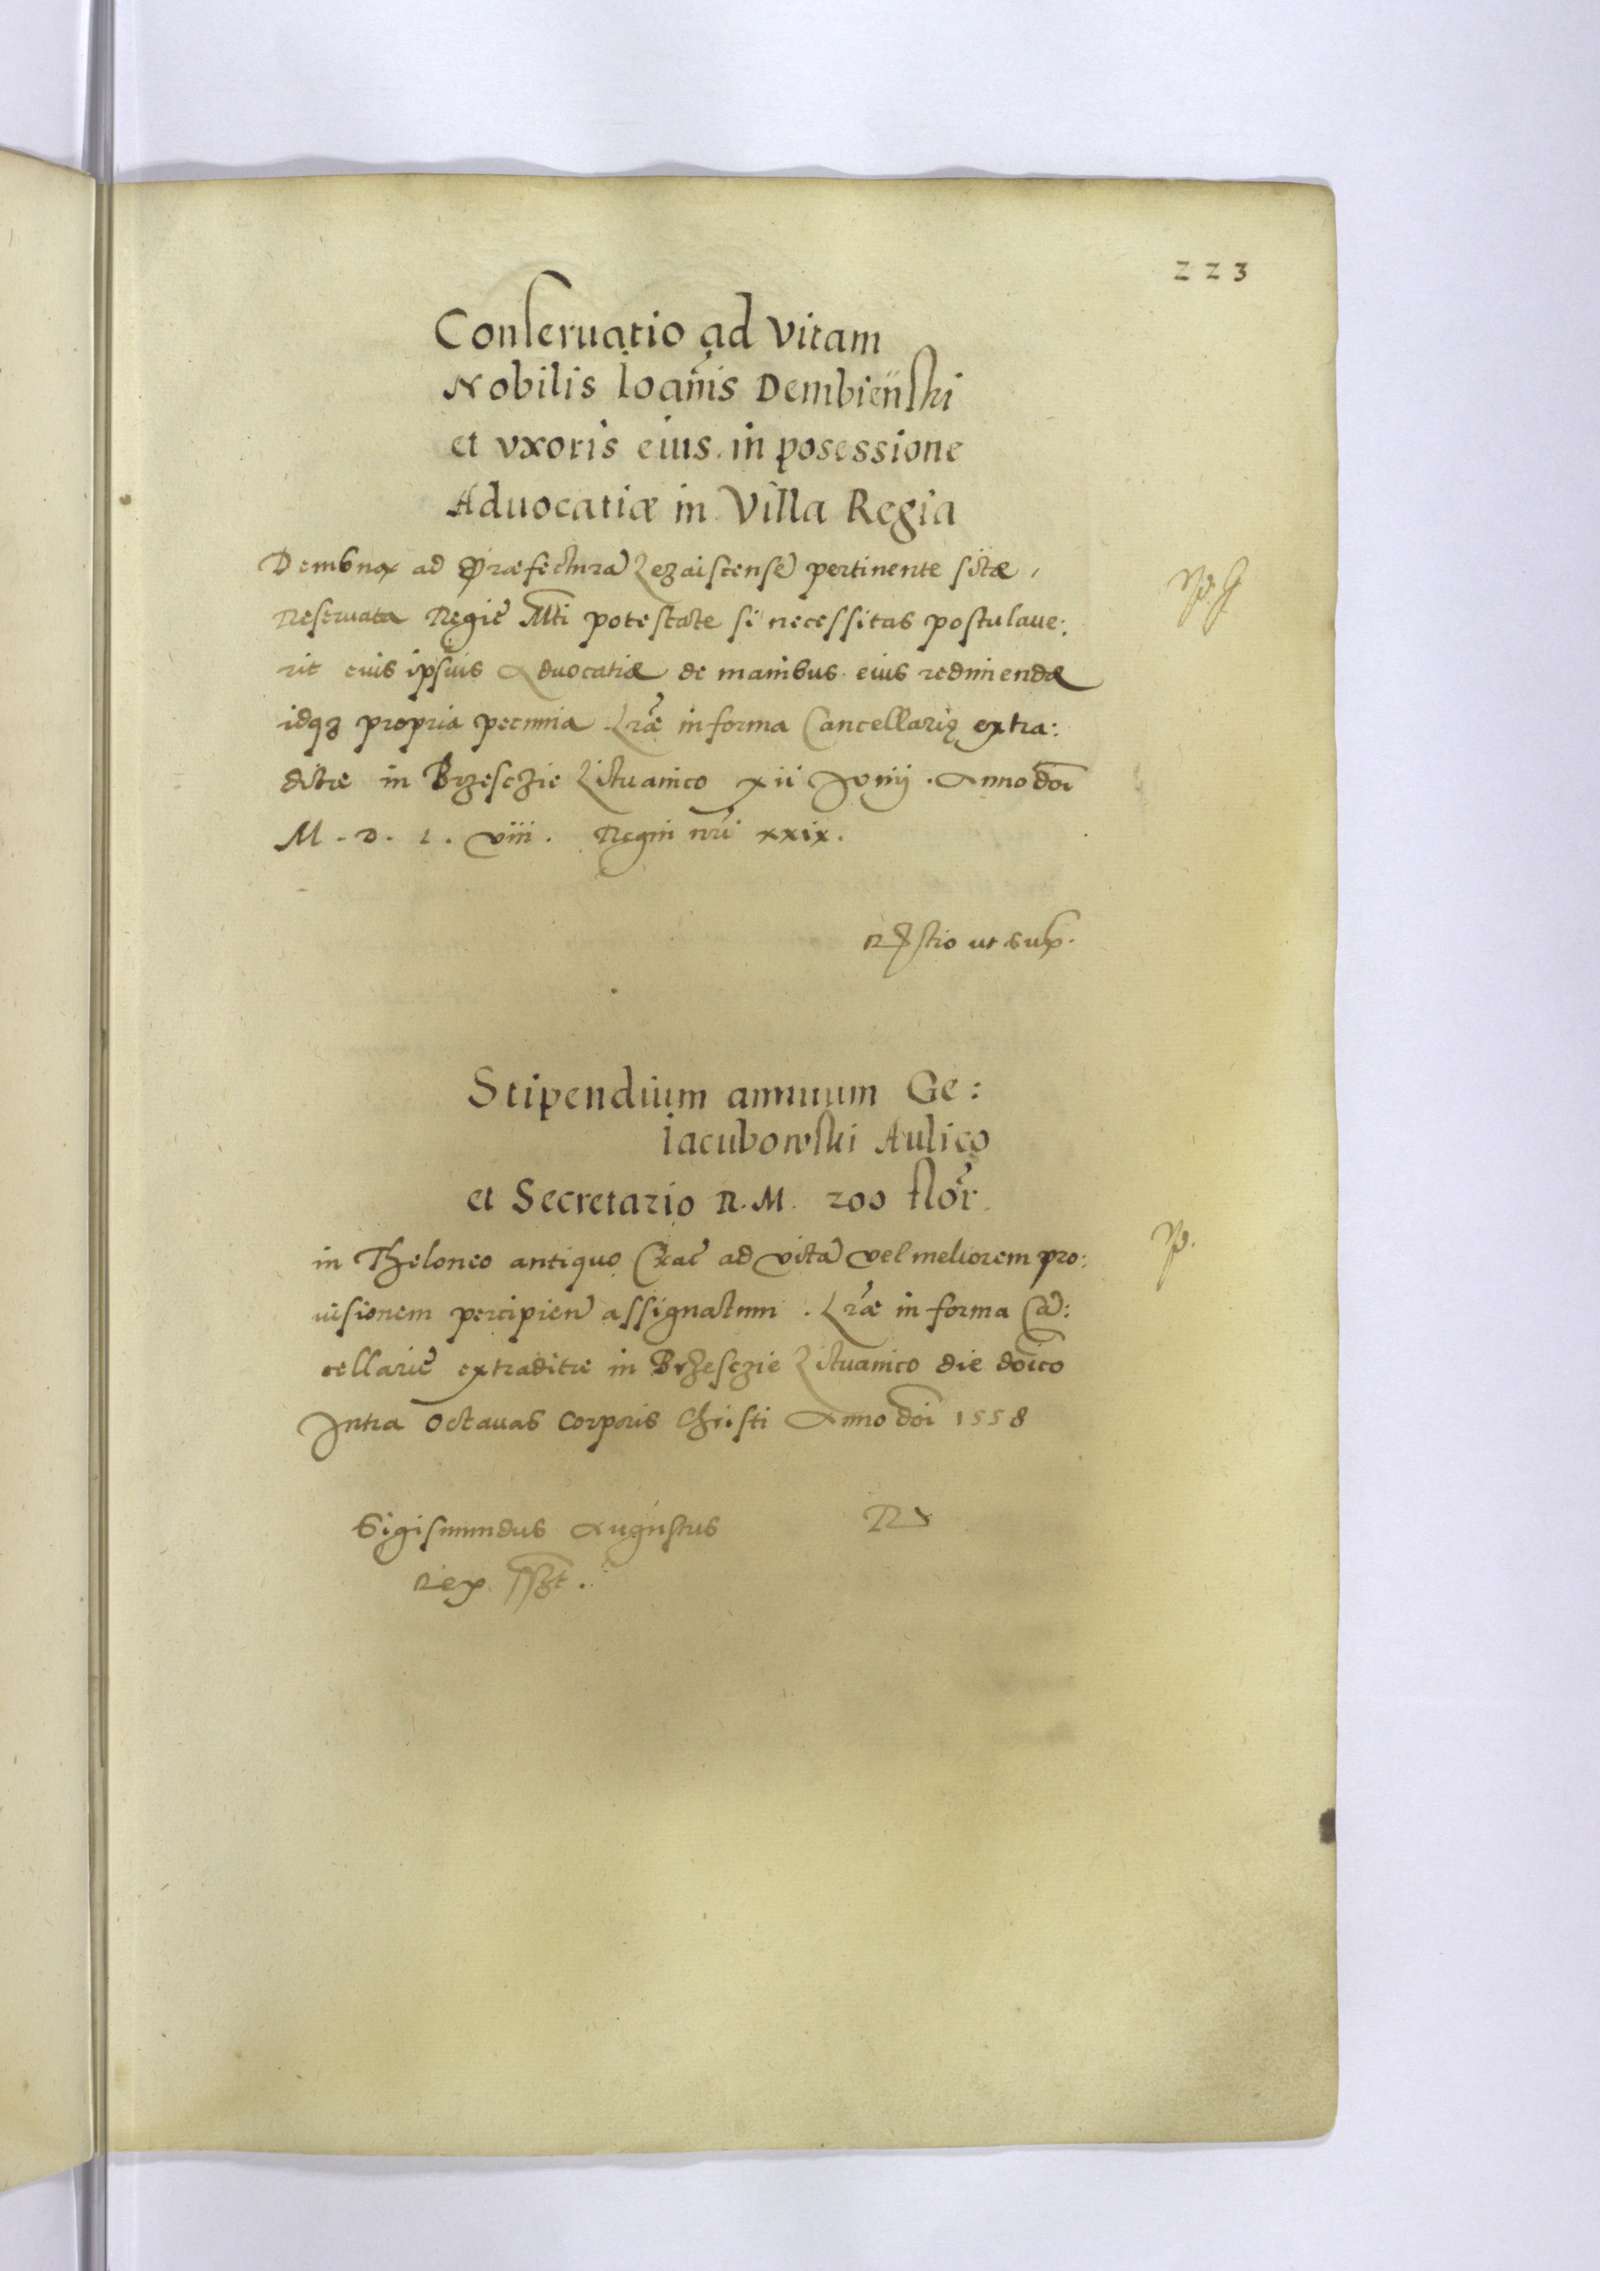 223
Conseruatio ad vitam
Nobilis Ioañis Dembieński
et vxoris eius in posessione
Advocatiæ in Villa Regia
Dembno ad Præfecturā Lezaiscensē pertinente sitæ,
Reservata Regiē Mti potestate si necessitas postulave:
rit eius ipsius Advocatiæ de manibus eius redimendæ
idqꝫ propria pecunia. Lræ in forma Cancellarię extra:
ditæ in Brzesczie Lituanico xii Junij. Anno doi
M. D. L. viii. Regni nri xxix.
Rstio ut sup.
Stipendium annuum Ge:
Iacubowski Aulico
et Secretario R. M. 200 flor.
in Theloneo antiquo Crac ad vitā vel meliorem pro:
visionem percipien assignatum. Lræ in forma Cā:
cellariē extraditæ in Brzesczie Lituanico die doico
Intra Octavas Corporis Christi Anno doi 1558
Sigismundus Augustus
Rex sszt.